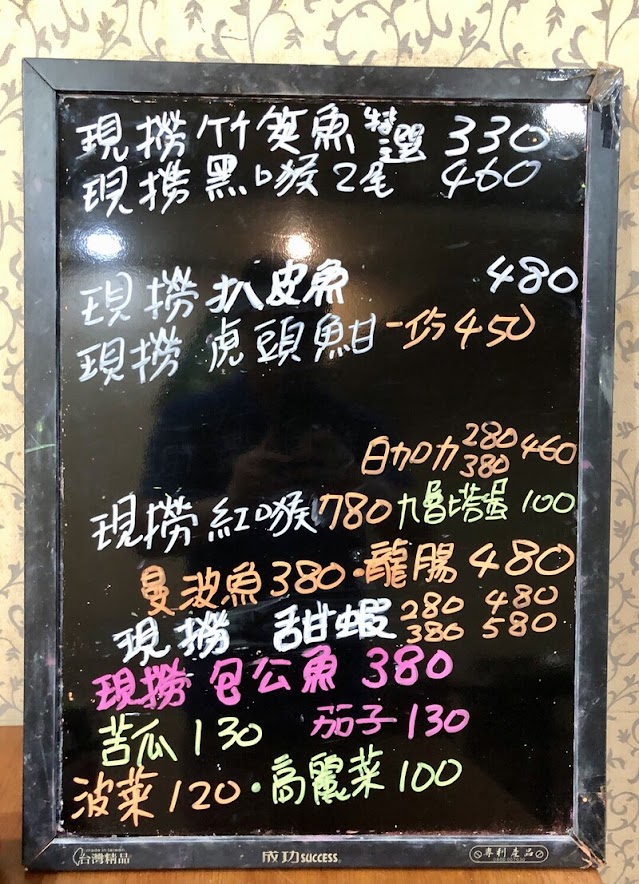 現撈竹筴魚特選 330
現撈黑口喉2尾 460
現撈扒皮魚 480
現撈虎頭魽一份450
白甘力 280 380 460
現撈紅口喉780 九層塔蛋 100
曼波魚380·龍腸480
現撈 甜蝦 280 480
380 580
現撈包公魚 380
苦瓜130 茄子130
波菜120·高麗菜100
made in taiwan
台灣精品 成功SUCCESS 專利產品